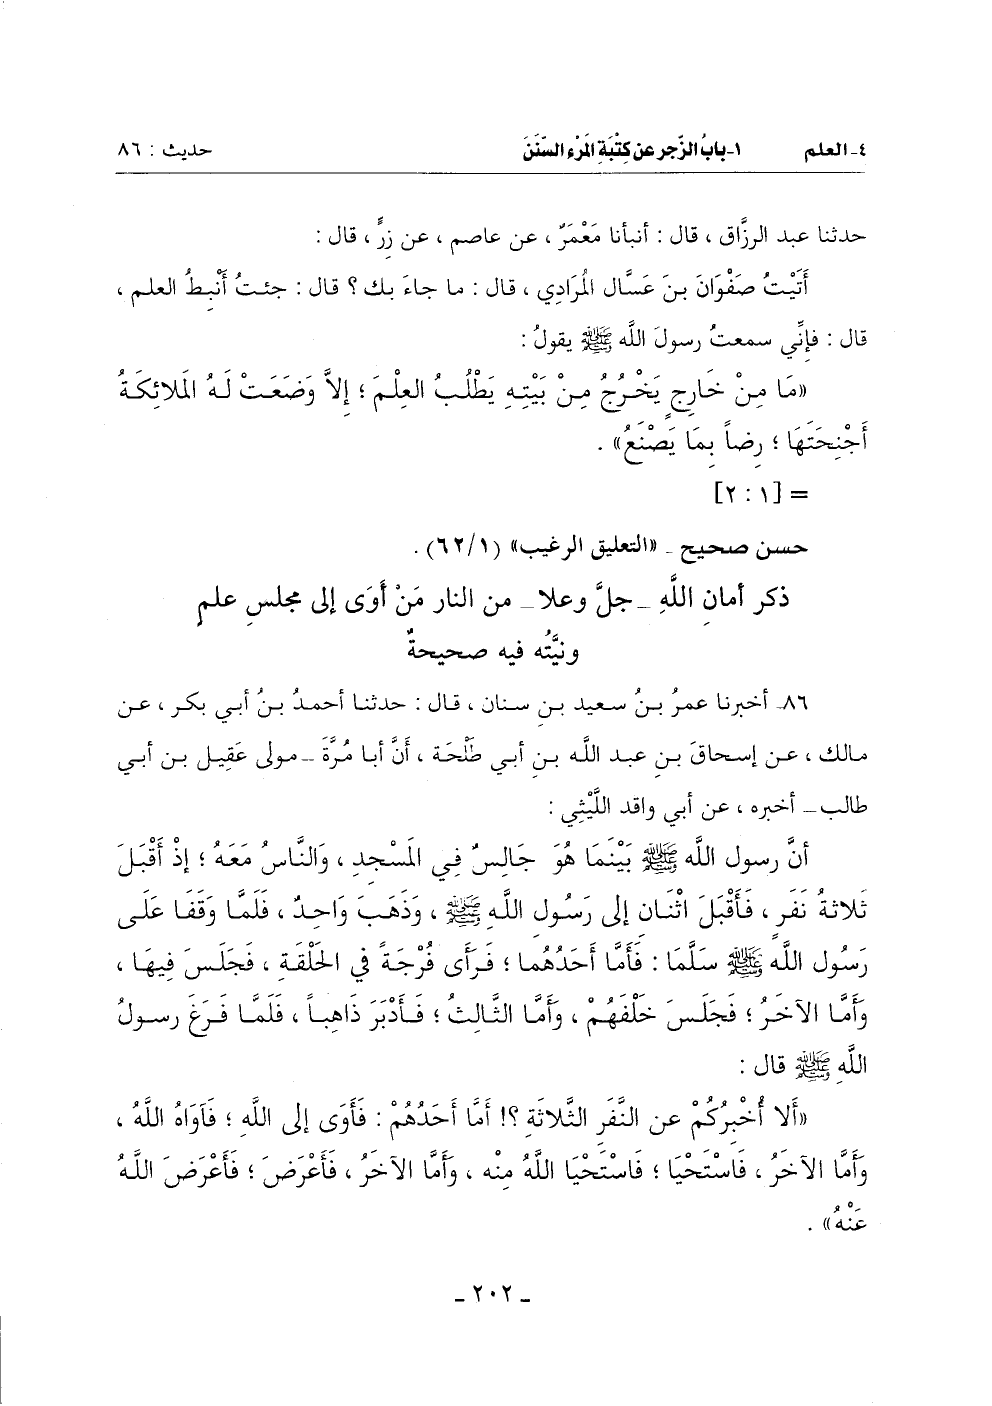 ٤ـ العلم ١ـ بابُ الزّجر عن كِتْبَةِ المَرْء السّنَنَ حديث : ٨٦
حدثنا عبد الرزَّاق ، قال : أنبأنا مَعْمَرٌ ، عن عاصم ، عن زرٍّ ، قال :
أَتَيْتُ صَفْوَانَ بنَ عَسَّال المُرَادِي ، قال : ما جاءَ بك ؟ قال : جئتُ أُنْبِطُ العلم ،
قال : فإنِّي سمعتُ رسولَ اللَّه ﷺ يقولُ :
«مَا مِنْ خَارِجٍ يَخْرُجُ مِنْ بَيْتِهِ يَطْلُبُ العِلْمَ ؛ إلاَّ وَضَعَتْ لَهُ المَلائِكَةُ
أَجْنِحَتَهَا ؛ رِضاً بِمَا يَصْنَعُ» .
= [١ : ٢]
حسن صحيح ـ «التعليق الرغيب» (١/ ٦٢) .
ذكر أمانِ اللَّهِ ـ جلَّ وعلا ـ من النار مَنْ أَوَى إلى مجلسِ علمٍ
ونيَّتُه فيه صحيحةٌ
٨٦ـ أخبرنا عمرُ بنُ سعيد بنِ سنان ، قال : حدثنا أحمدُ بنُ أبي بكر ، عن
مالك ، عن إسحاقَ بنِ عبد اللَّه بنِ أبي طَلْحَة ، أنَّ أبا مُرَّةَ ـ مولى عَقِيل بن أبي
طالب ـ أخبره ، عن أبي واقد اللَّيْثِي :
أنَّ رسول اللَّه ﷺ بَيْنَمَا هُوَ جَالِسٌ فِي المَسْجِدِ ، وَالنَّاسُ مَعَهُ ؛ إِذْ أَقْبَلَ
ثَلاثةُ نَفَرٍ ، فَأَقْبَلَ اثْنَانِ إلى رَسُولِ اللَّهِ ﷺ ، وَذَهَبَ وَاحِدٌ ، فَلَمَّا وَقَفَا عَلَى
رَسُولِ اللَّهِ ﷺ سَلَّمَا : فَأَمَّا أَحَدُهُما ؛ فَرَأى فُرْجَةً في الحَلْقَةِ ، فَجَلَسَ فِيهَا ،
وَأَمَّا الآخَرُ ؛ فَجَلَسَ خَلْفَهُمْ ، وَأَمَّا الثَّالِثُ ؛ فَأَدْبَرَ ذَاهِباً ، فَلَمَّا فَرَغَ رسولُ
اللَّهِ ﷺ قال :
«أَلا أُخْبِرُكُمْ عن النَّفَرِ الثَّلاثَةِ ؟! أَمَّا أَحَدُهُمْ : فَأَوَى إلى اللَّهِ ؛ فَآوَاهُ اللَّهُ ،
وَأَمَّا الآخَرُ ، فَاسْتَحْيَا ؛ فَاسْتَحْيَا اللَّهُ مِنْه ، وَأَمَّا الآخَرُ ، فَأَعْرَضَ ؛ فَأَعْرَضَ اللَّهُ
عَنْهُ» .
ـ ٢٠٢ ـ